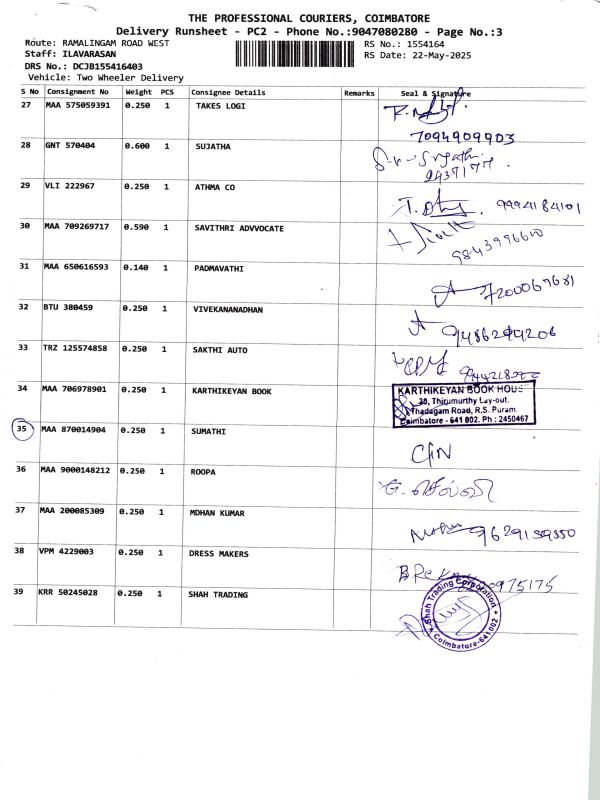 THE PROFESSIONAL COURIERS, COIMBATORE
Delivery Runsheet - PC2 - Phone No.:9047080280 - Page No.:3
Route: RAMALINGAM ROAD WEST
Staff: ILAVARASAN
DRS No.: DCJB155416403
Vehicle: Two Wheeler Delivery
RS No.: 1554164
RS Date: 22-May-2025
S No Consignment No Weight PCS Consignee Details Remarks Seal & Signature
27 MAA 575059391 0.250 1 TAKES LOGI
7094909903
28 GNT 570404 0.600 1 SUJATHA
29 VLI 222967 0.250 1 ATHMA CO
99941 84101
30 MAA 709269717 0.590 1 SAVITHRI ADVVOCATE
9843996610
31 MAA 650616593 0.140 1 PADMAVATHI
7200069681
32 BTU 380459 0.250 1 VIVEKANANDHAN
9486299206
33 TRZ 125574858 0.250 1 SAKTHI AUTO
34 MAA 706978901 0.250 1 KARTHIKEYAN BOOK
KARTHIKEYAN BOOK HOUSE
30, Thirumurthy Lay-out,
Thadagam Road, R.S. Puram,
Coimbatore - 641 002. Ph : 2450467
35 MAA 870014904 0.250 1 SUMATHI
C/N
36 MAA 9000148212 0.250 1 ROOPA
செல்வி
37 MAA 200085309 0.250 1 MDHAN KUMAR
9629159550
38 VPM 4229003 0.250 1 DRESS MAKERS
975175
39 KRR 50245028 0.250 1 SHAH TRADING
Shah Trading Corporation
Coimbatore-641 002